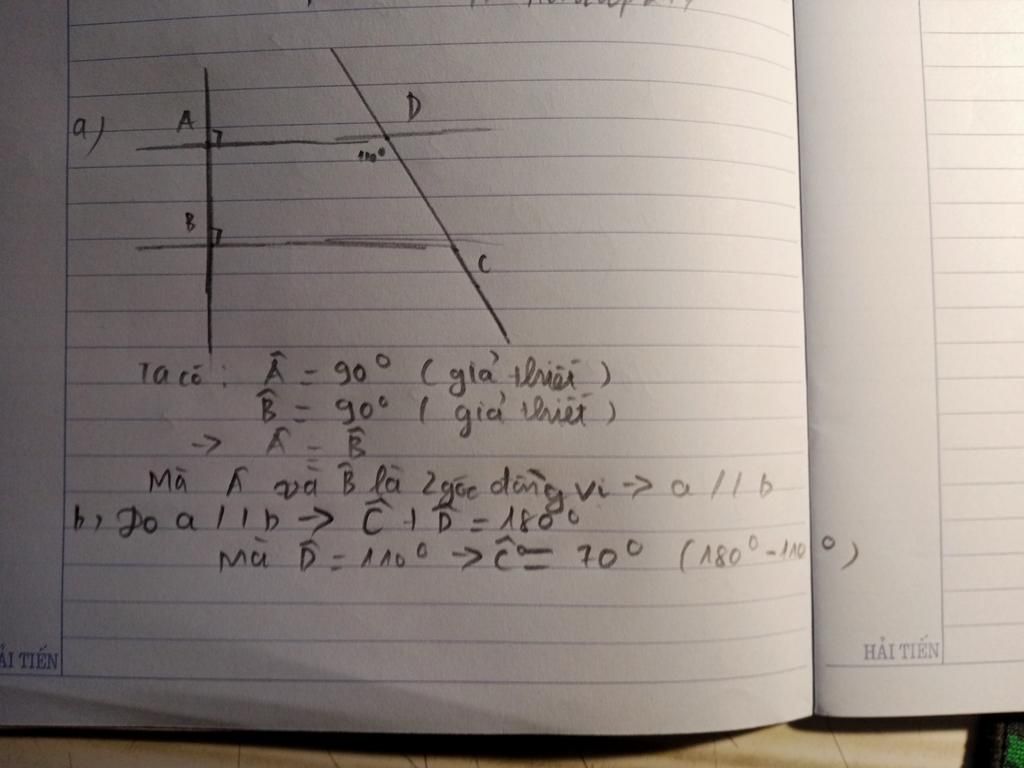 a)
A
D
110°
B
C
Ta có: Â = 90° (giả thiết)
B̂ = 90° (giả thiết)
-> Â = B̂
Mà Â và B̂ là 2 góc đồng vị -> a // b
b, Do a // b -> Ĉ + D̂ = 180°
Mà D̂ = 110° -> Ĉ = 70° (180° - 110°)
ẢI TIẾN
HẢI TIẾN